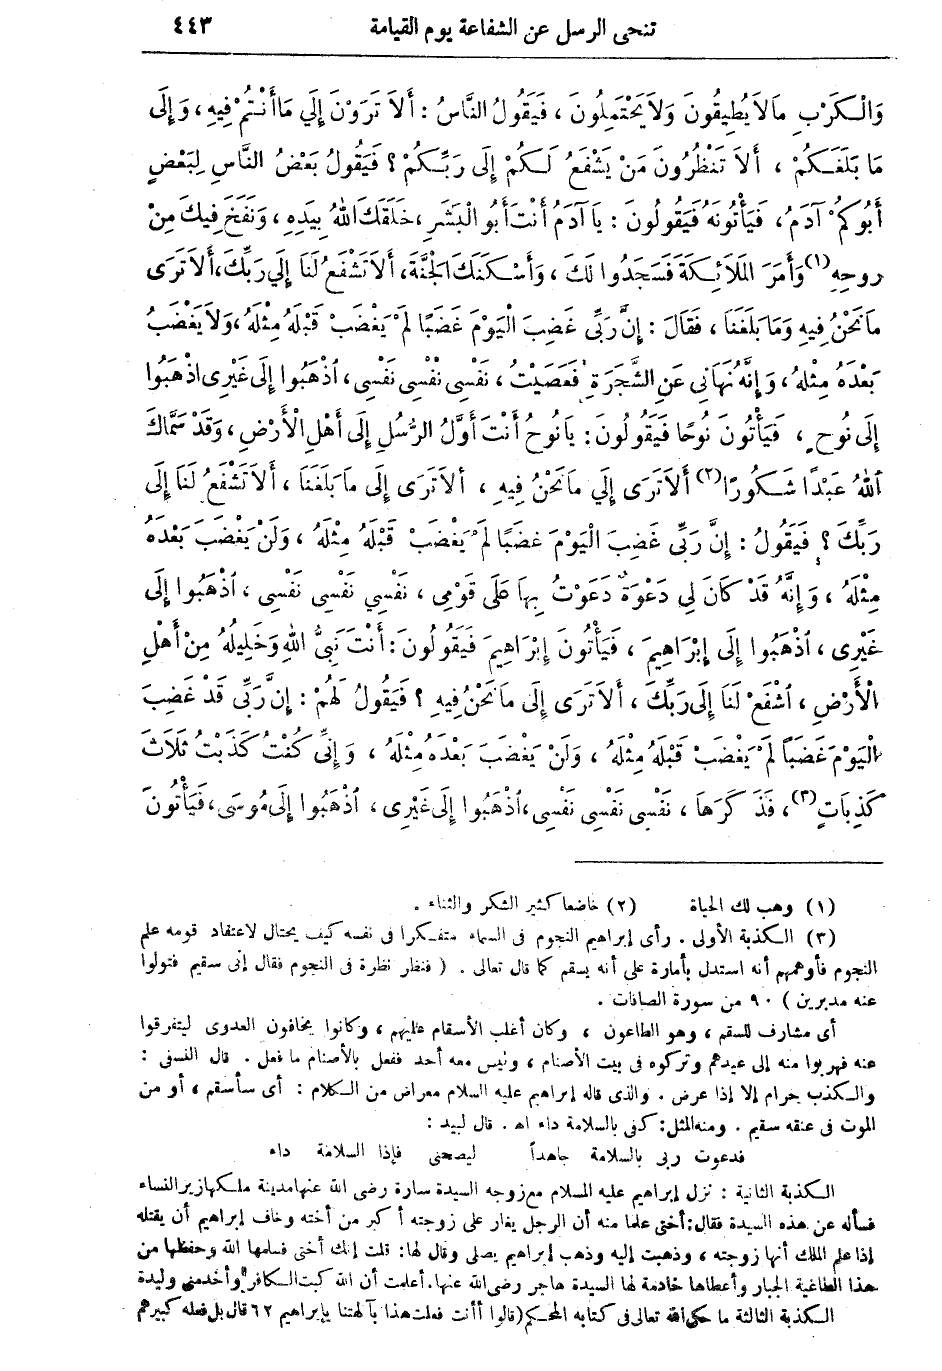 تنحى الرسل عن الشفاعة يوم القيامة ٤٤٣
وَالْكَرْبِ مَالاَ يُطِيقُونَ وَلاَ يَحْتَمِلُونَ ، فَيَقُولُ النَّاسُ : أَلاَ تَرَوْنَ إِلَي مَا أَنْتُمْ فِيهِ ، وَإِلَى
مَا بَلَغَكُمْ ، أَلاَ تَنْظُرُونَ مَنْ يَشْفَعُ لَكُمْ إِلَى رَبِّكُمْ ؟ فَيَقُولُ بَعْضُ النَّاسِ لِبَعْضٍ
أَبُوكُمْ آدَمُ، فَيَأْتُونَهُ فَيَقُولُونَ : يَا آدَمُ أَنْتَ أَبُو الْبَشَرِ ، خَلَقَكَ اللهُ بِيَدِهِ ، وَنَفَخَ فِيكَ مِنْ
رُوحِهِ (١) وَأَمَرَ الْمَلاَئِكَةَ فَسَجَدُوا لَكَ ، وَأَسْكَنَكَ الْجَنَّةَ، أَلاَ تَشْفَعُ لَنَا إِلَي رَبِّكَ، أَلاَ تَرَى
مَا نَحْنُ فِيهِ وَمَا بَلَغَنَا ، فَقَالَ : إِنَّ رَبِّى غَضِبَ الْيَوْمَ غَضَبًا لَمْ يَغْضَبْ قَبْلَهُ مِثْلَهُ ، وَلاَ يَغْضَبُ
بَعْدَهُ مِثْلَهُ ، وَإِنَّهُ نَهَانِي عَنِ الشَّجَرَةِ فَعَصَيْتُ ، نَفْسِى نَفْسِى نَفْسِى، اذْهَبُوا إِلَى غَيْرِى اذْهَبُوا
إِلَى نُوحٍ ، فَيَأْتُونَ نُوحًا فَيَقُولُونَ: يَانُوحُ أَنْتَ أَوَّلُ الرُّسُلِ إِلَى أَهْلِ الْأَرْضِ ، وَقَدْ سَمَّاكَ
اللهُ عَبْدًا شَكُورًا (٢) أَلاَ تَرَى إِلَي مَا نَحْنُ فِيهِ ، أَلاَ تَرَى إِلَى مَا بَلَغَنَا ، أَلاَ تَشْفَعُ لَنَا إِلَى
رَبِّكَ ؟ فَيَقُولُ : إِنَّ رَبِّى غَضِبَ الْيَوْمَ غَضَبًا لَمْ يَغْضَبْ قَبْلَهُ مِثْلَهُ ، وَلَنْ يَغْضَبَ بَعْدَهُ
مِثْلَهُ ، وَإِنَّهُ قَدْ كَانَ لِى دَعْوَةٌ دَعَوْتُ بِهَا عَلَى قَوْمِى ، نَفْسِي نَفْسِى نَفْسِى ، اذْهَبُوا إِلَى
غَيْرِى ، اذْهَبُوا إِلَى إِبْرَاهِيمَ ، فَيَأْتُونَ إِبْرَاهِيمَ فَيَقُولُونَ: أَنْتَ نَبِىُّ اللهِ وَخَلِيلُهُ مِنْ أَهْلِ
الْأَرْضِ ، اشْفَعْ لَنَا إِلَى رَبِّكَ ، أَلاَ تَرَى إِلَى مَا نَحْنُ فِيهِ ؟ فَيَقُولُ لَهُمْ : إِنَّ رَبِّى قَدْ غَضِبَ
الْيَوْمَ غَضَبًا لَمْ يَغْضَبْ قَبْلَهُ مِثْلَهُ ، وَلَنْ يَغْضَبَ بَعْدَهُ مِثْلَهُ ، وَإِنِّى كُنْتُ كَذَبْتُ ثَلَاثَ
كَذِبَاتٍ (٣) ، فَذَكَرَهَا ، نَفْسِى نَفْسِى نَفْسِى، اذْهَبُوا إِلَى غَيْرِى ، اذْهَبُوا إِلَى مُوسَى، فَيَأْتُونَ
(١) وهب لك الحياة (٢) خاضعا كثير الشكر والثناء .
(٣) الكذبة الأولى . رأى إبراهيم النجوم فى السماء متفكرا فى نفسه كيف يحتال لاعتقاد قومه علم
النجوم فأوهمهم أنه استدل بأمارة على أنه يسقم كما قال تعالى . ( فنظر نظرة فى النجوم فقال إنى سقيم فتولوا
عنه مدبرين ) ٩٠ من سورة الصافات .
أى مشارف للسقم ، وهو الطاعون ، وكان أغلب الأسقام عليهم ، وكانوا يخافون العدوى ليتفرقوا
عنه فهربوا منه إلى عيدهم وتركوه فى بيت الأصنام ، وليس معه أحد ففعل بالأصنام ما فعل . قال النسفى :
والكذب حرام إلا إذا عرض . والذى قاله إبراهيم عليه السلام معراض من الكلام : أى سأسقم ، أو من
الموت فى عنقه سقيم . ومنه المثل: كفى بالسلامة داء اه . قال لبيد :
فدعوت ربى بالسلامة جاهداً ليصحنى فإذا السلامة داء
الكذبة الثانية : نزل إبراهيم عليه السلام مع زوجه السيدة سارة رضى الله عنها مدينة ملكها زير النساء
فسأله عن هذه السيدة فقال: أختى علما منه أن الرجل يغار على زوجته أكبر من أخته وخاف إبراهيم أن يقتله
إذا علم الملك أنها زوجته ، وذهبت إليه وذهب إبراهيم يصلى وقال لها: قلت إنك أختى فسلمها الله وحفظها من
هذا الطاغية الجبار وأعطاها خادمة لها السيدة هاجر رضى الله عنها. أعلمت أن الله كبت الكافر وأخدمنى وليدة
الكذبة الثالثة ما حكى الله تعالى فى كتابه المحكم (قالوا أأنت فعلت هذا بآلهتنا يإبراهيم ٦٢ قال بل فعله كبيرهم